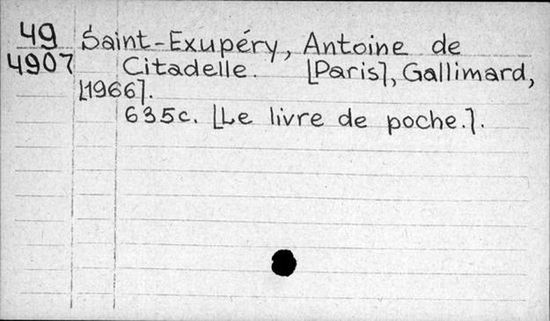 49 Saint-Exupéry, Antoine de
4907 Citadelle. [Paris], Gallimard,
[1966].
635c. [Le livre de poche.].